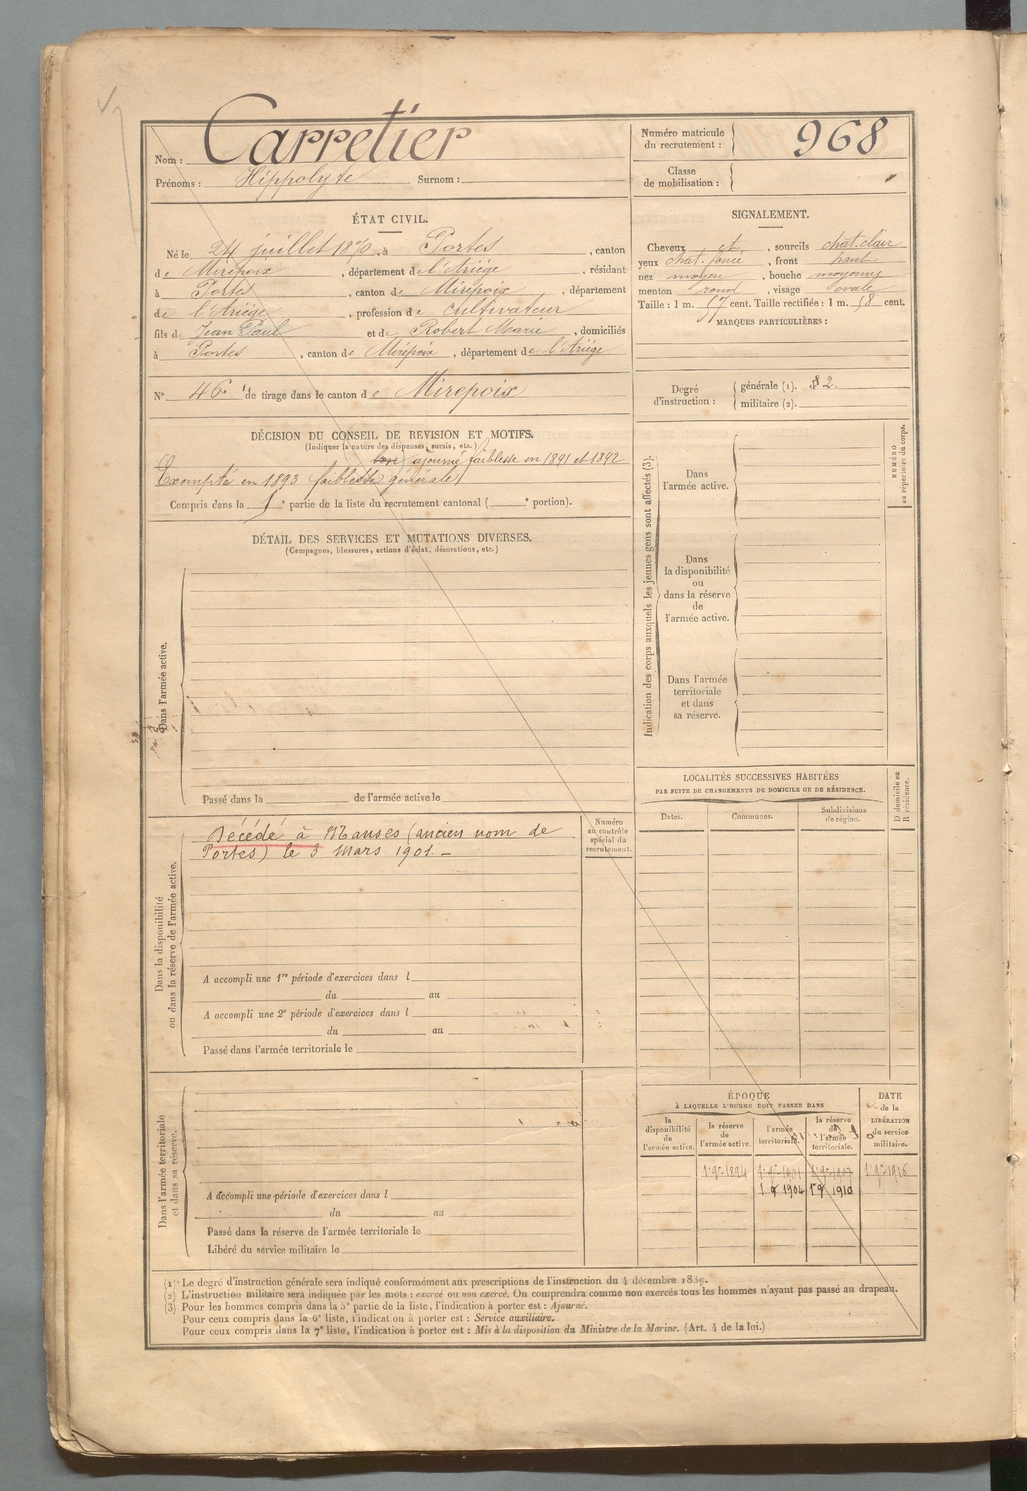 Nom : Carretier
Prénoms : Hippolyte Surnom :
Numéro matricule du recrutement : 968
Classe de mobilisation :
ÉTAT CIVIL.
Né le 24 juillet 1870, à Portes, canton
de Mirepoix, département de l'Ariège, résidant
à Portes, canton de Mirepoix, département
de l'Ariège, profession de cultivateur
fils de Jean Paul et de Robert Marie, domiciliés
à Portes, canton de Mirepoix, département de l'Ariège
N° 46 de tirage dans le canton de Mirepoix
SIGNALEMENT.
Cheveux et, sourcils chat. clair
yeux chat. foncé, front haut
nez moyen, bouche moyenne
menton rond, visage ovale
Taille : 1 m. 57 cent. Taille rectifiée : 1 m. 58 cent.
MARQUES PARTICULIÈRES :
Degré d'instruction : générale (1). 2.
militaire (2).
DÉCISION DU CONSEIL DE REVISION ET MOTIFS.
(Indiquer la nature des dispenses, sursis, etc.)
ajourné faiblesse en 1891 et 1892
Exempté en 1893 faiblesse générale
Compris dans la e partie de la liste du recrutement cantonal ( e portion).
DÉTAIL DES SERVICES ET MUTATIONS DIVERSES.
(Campagnes, blessures, actions d'éclat, décorations, etc.)
Dans l'armée active.
Passé dans la de l'armée active le
Indication des corps auxquels les jeunes gens sont affectés (3).
Dans
l'armée active.
Dans
la disponibilité
ou
dans la réserve
de
l'armée active.
Dans l'armée
territoriale
et dans
sa réserve.
NUMÉRO
au répertoire du corps.
LOCALITÉS SUCCESSIVES HABITÉES
PAR SUITE DE CHANGEMENTS DE DOMICILE OU DE RÉSIDENCE.
Dates. Communes. Subdivisions de région.
D domicile ou
R résidence.
Dans la disponibilité
ou dans la réserve de l'armée active.
Numéro
au contrôle
spécial du
recrutement.
Décédé à Manses (ancien nom de
Portes) le 3 Mars 1901. —
A accompli une 1re période d'exercices dans l
du au
A accompli une 2e période d'exercices dans l
du au
Passé dans l'armée territoriale le
Dans l'armée territoriale
et dans sa réserve.
A accompli une période d'exercices dans l
du au
Passé dans la réserve de l'armée territoriale le
Libéré du service militaire le
ÉPOQUE
À LAQUELLE L'HOMME DOIT PASSER DANS
la disponibilité de l'armée active.
la réserve de l'armée active.
l'armée territoriale.
la réserve de l'armée territoriale.
DATE
de la
LIBÉRATION
du service
militaire.
1 9 1904 1 9 1910
(1) Le degré d'instruction générale sera indiqué conformément aux prescriptions de l'instruction du 4 décembre 1889.
(2) L'instruction militaire sera indiquée par les mots : exercé ou non exercé. On comprendra comme non exercés tous les hommes n'ayant pas passé au drapeau.
(3) Pour les hommes compris dans la 5e partie de la liste, l'indication à porter est : Ajourné.
Pour ceux compris dans la 6e liste, l'indication à porter est : Service auxiliaire.
Pour ceux compris dans la 7e liste, l'indication à porter est : Mis à la disposition du Ministre de la Marine. (Art. 4 de la loi.)